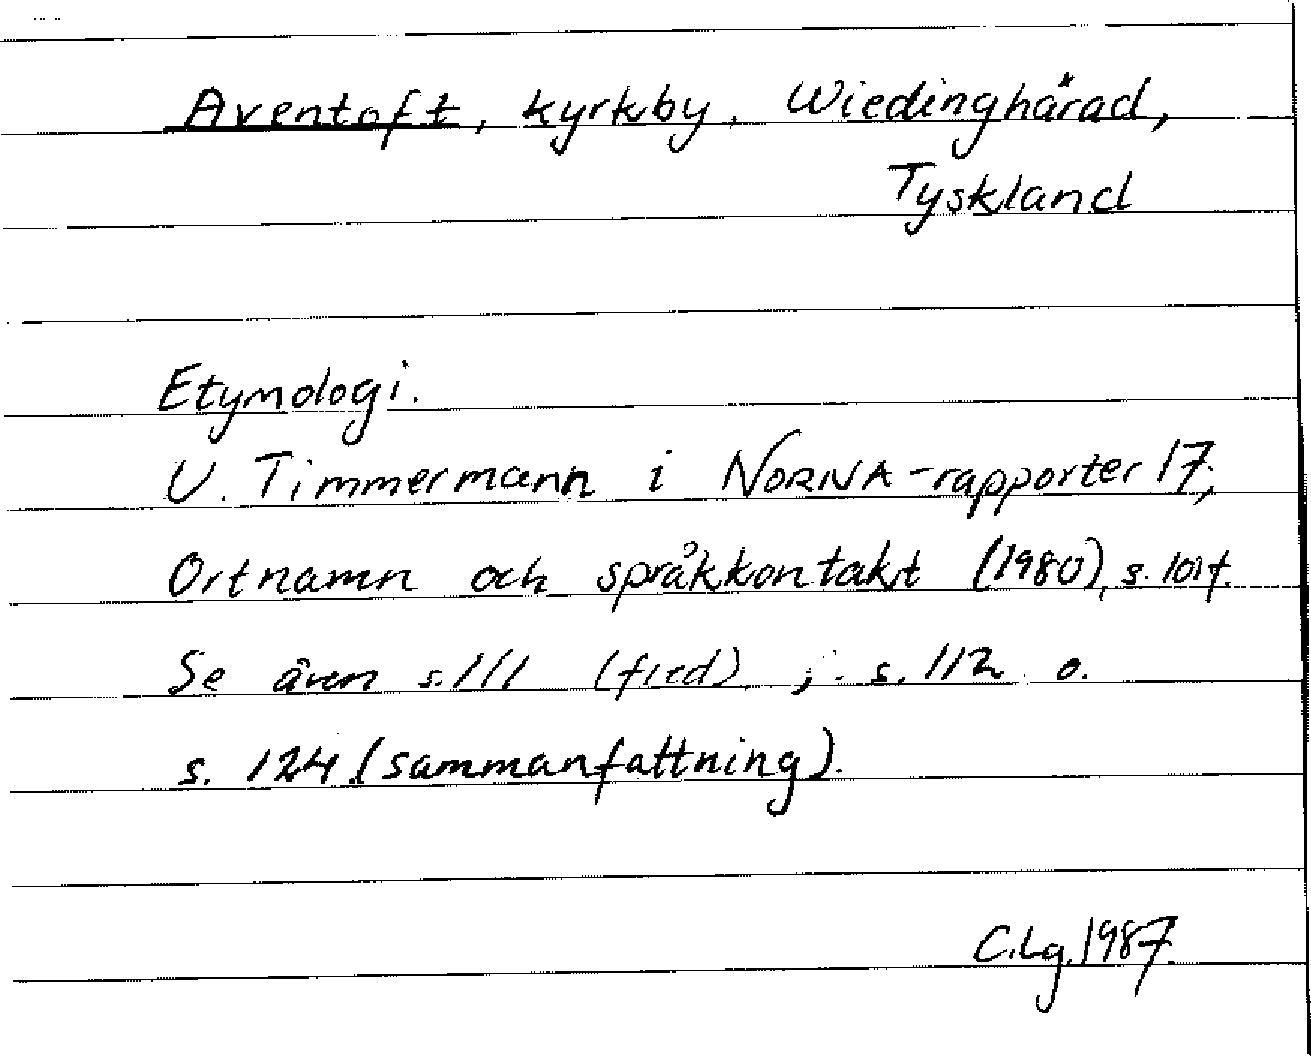 Aventoft, kyrkby, Wiedinghärad,
Tyskland
Etymologi.
U. Timmermann i NORNA-rapporter 17;
Ortnamn och språkkontakt (1980), s. 101f.
Se även s. 111 (fred); s. 112 o.
s. 124 (sammanfattning).
C.Lg. 1987.